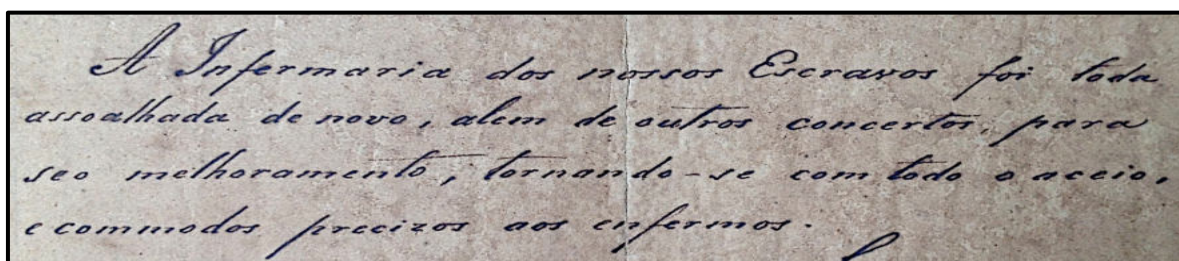 A Infermaria dos nossos Escravos foi toda
assoalhada de novo, alem de outros concertos, para
seo melhoramento; tornando-se com todo o aceio,
e commodos precizos aos enfermos.